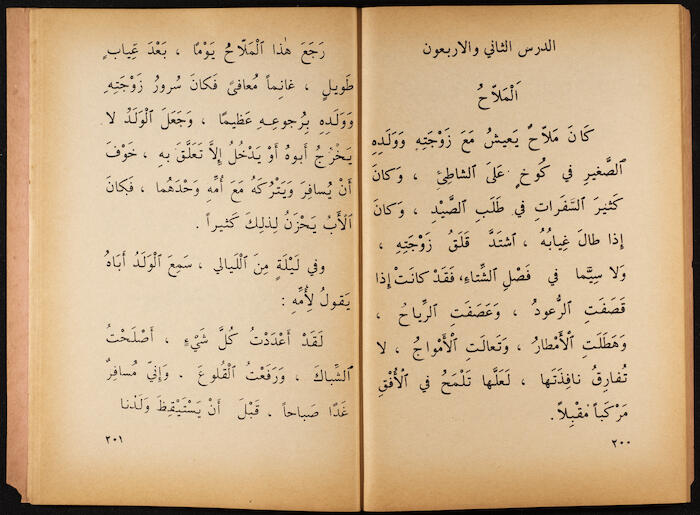 الدرس الثاني والاربعون
اَلْمَلاّحُ
كَانَ مَلاّحٌ يَعيشُ مَعَ زَوْجَتِهِ وَوَلَدِهِ
ٱلصَّغيرِ في كُوخٍ عَلَىَ ٱلشاطِئِ ، وَكانَ
كَثيرَ ٱلسَّفَراتِ في طَلَبِ ٱلصَّيْدِ ، وَكانَ
إِذا طالَ غِيابُهُ ، ٱشْتَدَّ قَلَقُ زَوْجَتِهِ ،
وَلا سِيَّما في فَصْلِ ٱلشِّتاءِ، فَقَدْ كانَتْ إِذا
قَصَفَتِ ٱلرُّعودُ ، وَعَصَفَتِ ٱلرِّياحُ ،
وَهَطَلَتِ ٱلْأَمْطارُ ، وَتَعالَتِ ٱلْأَمْواجُ ، لا
تُفارِقُ نافِذَتَها ، لَعَلَّها تَلْمَحُ في ٱلْأُفْقِ
مَرْكَباً مُقْبِلاً.
٢٠٠
رَجَعَ هٰذا ٱلْمَلاّحُ يَوْمًا ، بَعْدَ غِيابٍ
طَويلٍ ، غانِماً مُعافىً فَكانَ سُرورُ زَوْجَتِهِ
وَوَلَدِهِ بِرُجوعِهِ عَظيمًا ، وَجَعَلَ ٱلْوَلَدُ لا
يَخْرُجُ أَبوهُ أَوْ يَدْخُلُ إِلاَّ تَعَلَّقَ بِهِ ، خَوْفَ
أَنْ يُسافِرَ وَيَتْرُكَهُ مَعَ أُمِّهِ وَحْدَهُما ، فَكانَ
ٱلْأَبُ يَحْزَنُ لِذلِكَ كَثيراً .
وفي لَيْلَةٍ مِنَ ٱللَّيالي ، سَمِعَ ٱلْوَلَدُ أَباهُ
يَقولُ لِأُمِّهِ :
لَقَدْ أَعْدَدْتُ كُلَّ شَيْءٍ ، أَصْلَحْتُ
ٱلشِّباكَ ، وَرَفَعْتُ ٱلْقُلوعَ . وَإِنّي مُسافِرٌ
غَدًا صَباحاً ، قَبْلَ أَنْ يَسْتَيْقِظَ وَلَدُنا
٢٠١